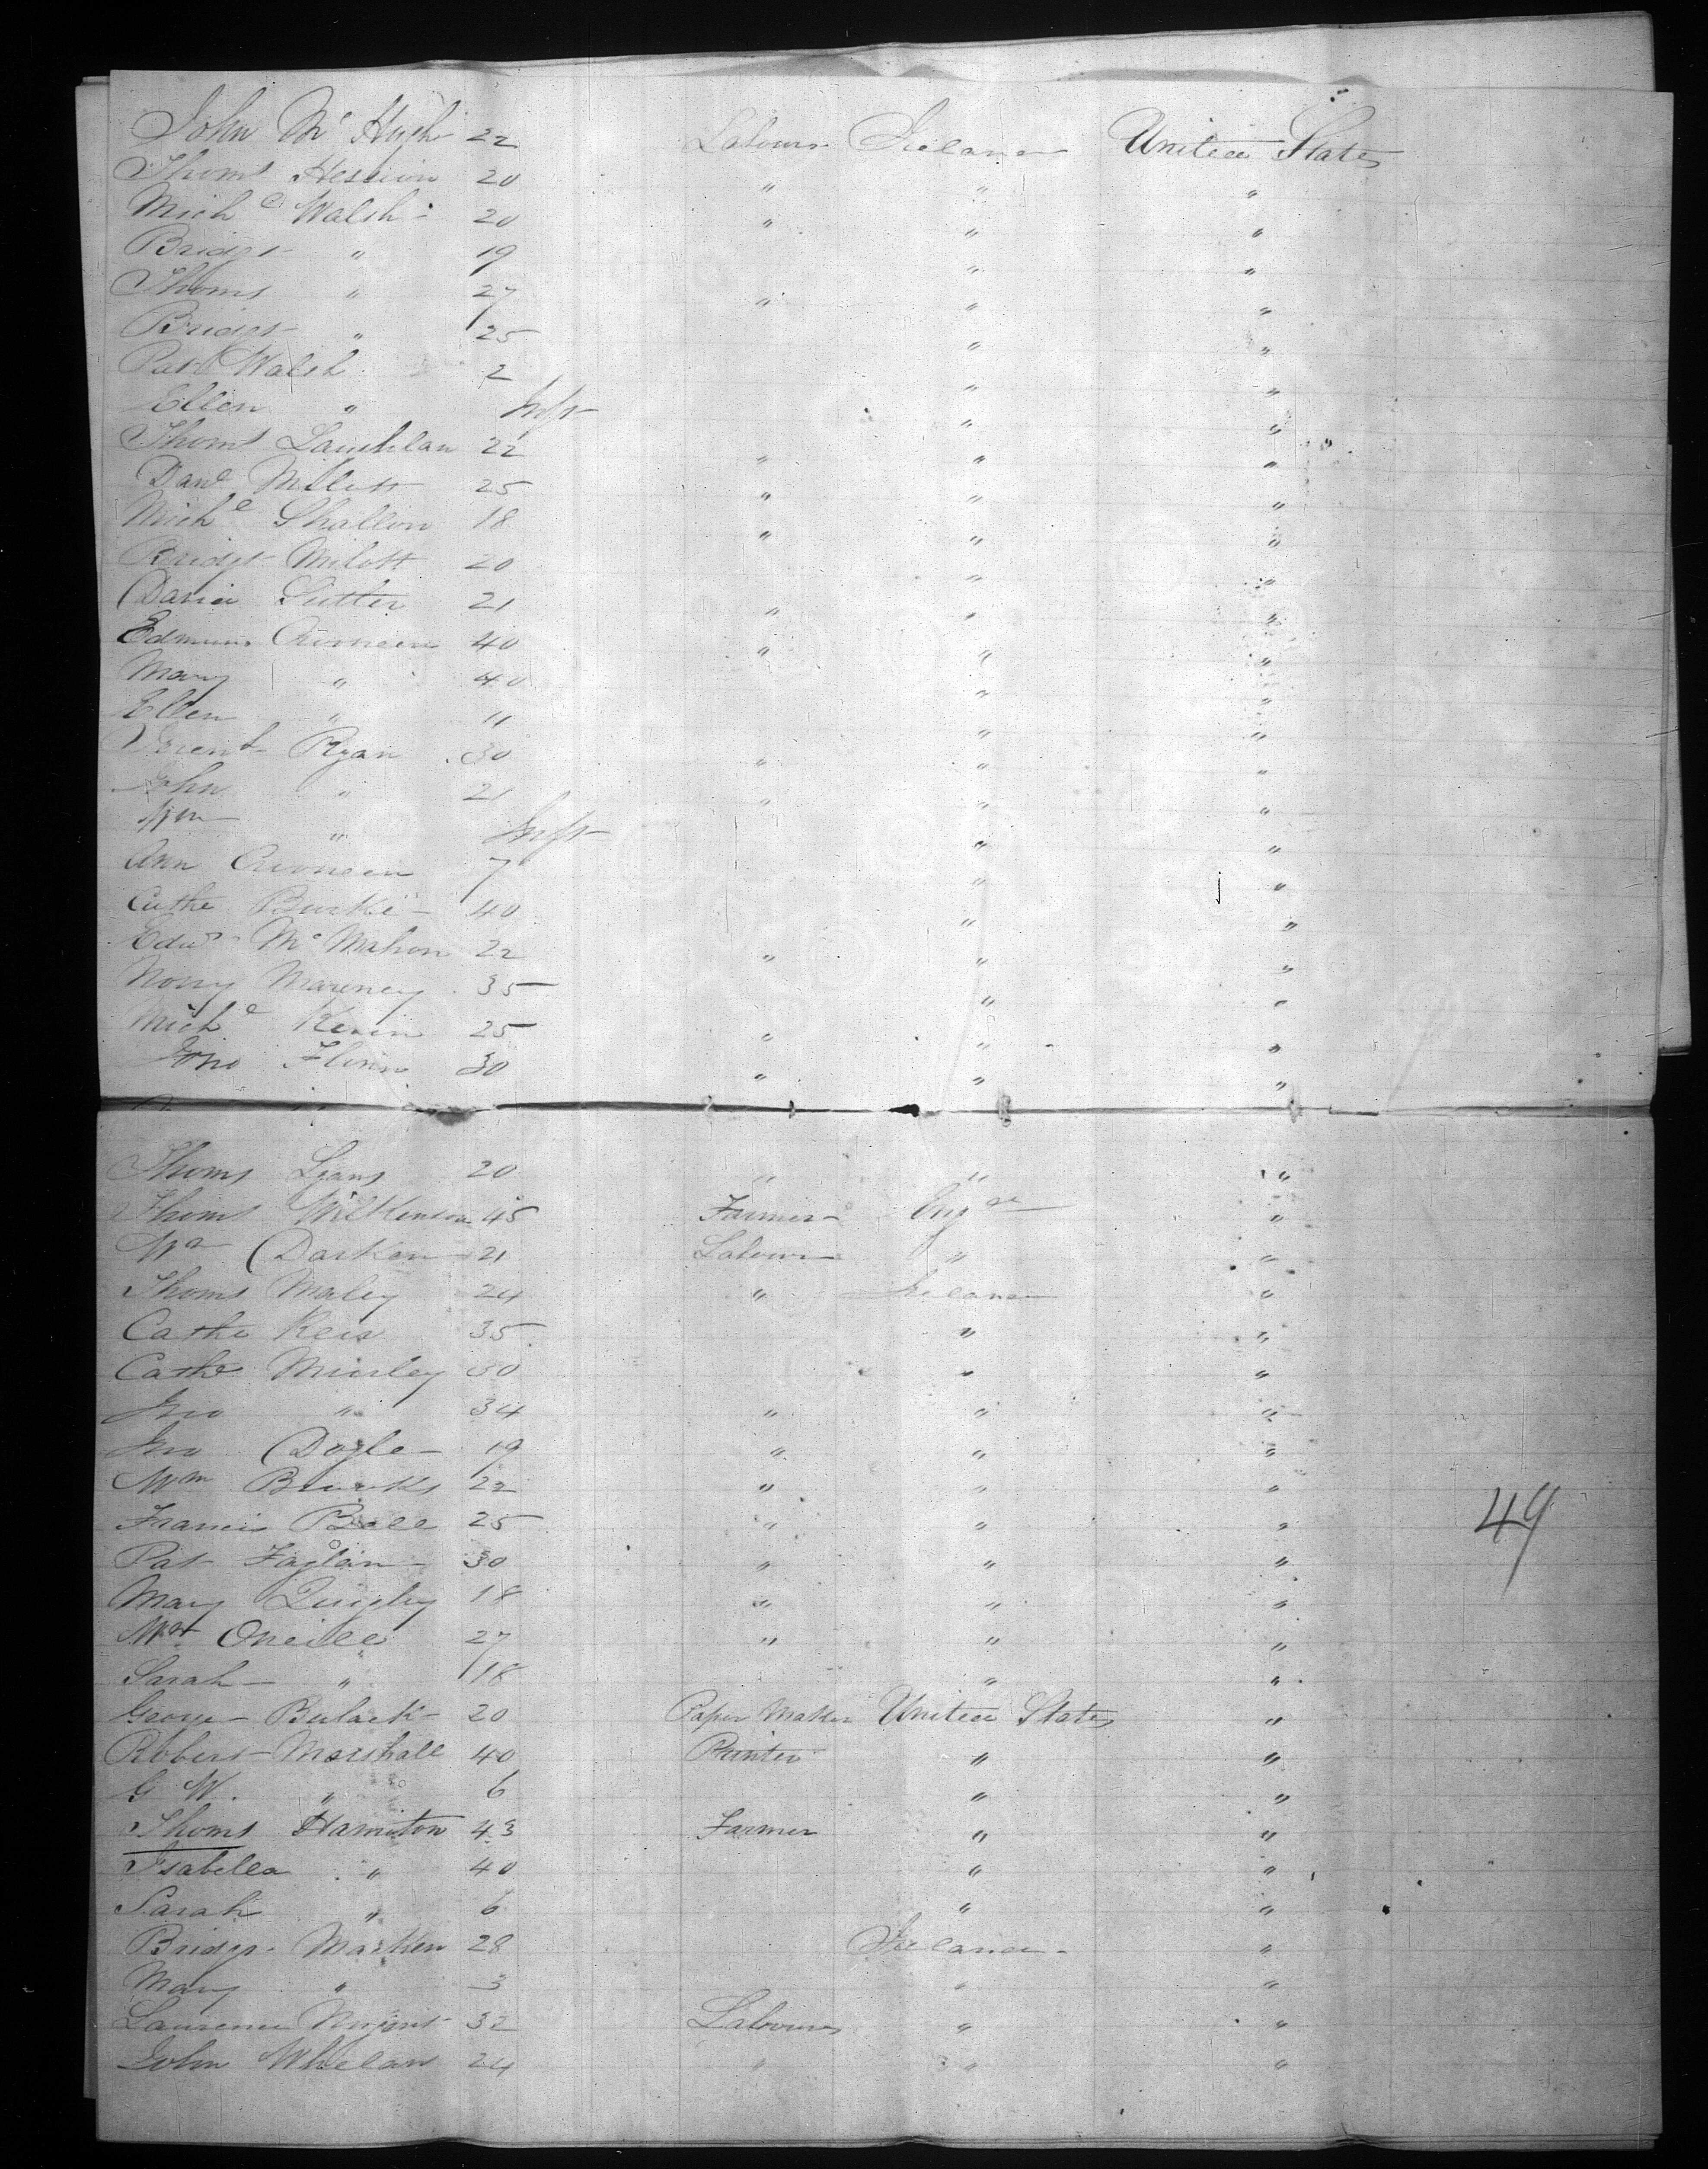 John Mc Hugh 22 Labourer Ireland United States
Thoms Hession 20 " " "
Michl Walsh 20 " " "
Bridgt " 19 " "
Thoms " 27 " " "
Bridgt " 25 " "
Pat Walsh 2 " "
Ellen " Inft " "
Thoms Lauchlan 22 " " "
Danl Millott 25 " " "
Michl Shallon 18 " " "
Bridgt Milott 20 " "
David Sutter 21 " " "
Edmund 40 " " "
Mary " 40 " "
Ellen " 11 " "
Ryan 30 " " "
John " 21 " " "
Wm " Inft " "
Ann 7 " "
Cathe Burke 40 " "
Edwd Mc Mahon 22 " " "
Nony 35 " "
Michl 25 " " "
Jno Flinn 30 " " "
Thoms Lyans 20 " " "
Thoms Wilkenson 45 Farmer Engd "
Wm Darken 21 Labourer " "
Thoms Maley 24 " Ireland "
Cathe 35 " "
Cathe 30 " "
Jno " 34 " " "
Jno Doyle 19 " " "
Wm 22 " " "
Francis Bell 25 " " "
Pat Faglan 30 " " "
Mary Quigley 18 " " "
Wm Oneill 27 " " "
Sarah " 18 " "
George Bulack 20 Paper Maker United States "
Robert Marshall 40 Printer " "
G W. " 6 " "
Thoms Hamilton 43 Farmer " "
Isabella " 40 " "
Sarah " 6 " "
Bridgt Marken 28 Ireland "
Mary " 3 " "
Laurence Nugent 32 Labourer " "
John Whelan 24 " " "
49